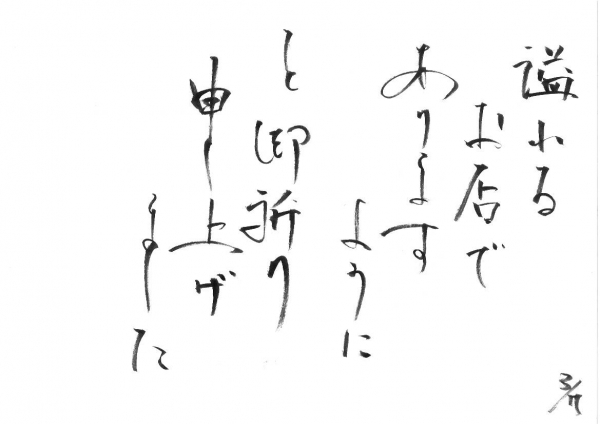 溢れる
お店で
あります
ように
と御祈り
申し上げ
ました
3/17